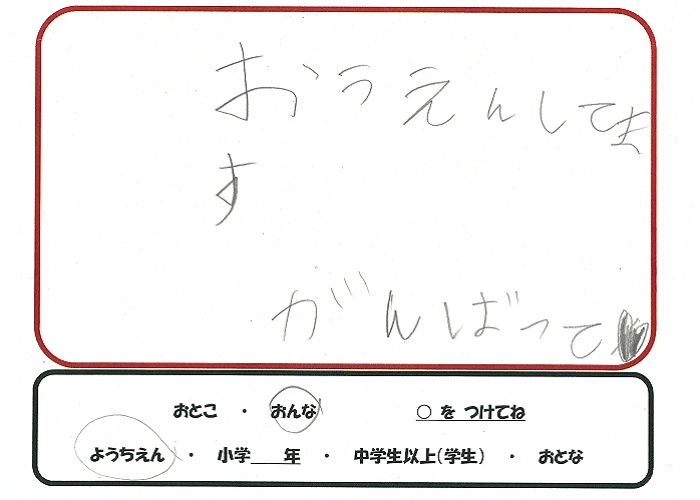 おうえんしてま
す
がんばって♥
おとこ ・ おんな ○ を つけてね
ようちえん ・ 小学＿＿年 ・ 中学生以上（学生） ・ おとな